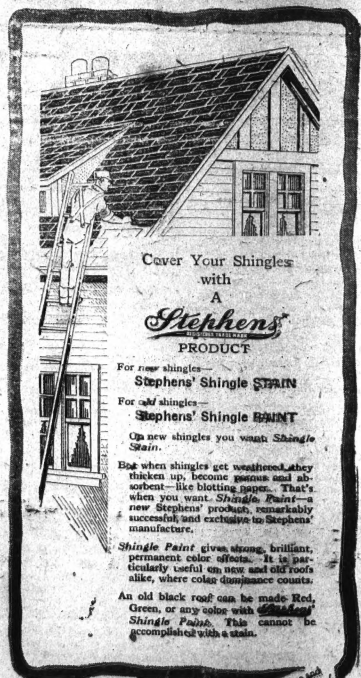 Cover Your Shingles
with
A
Stephens'
REGISTERED TRADE MARK
PRODUCT
For new shingles—
Stephens' Shingle STAIN
For old shingles—
Stephens' Shingle PAINT
On new shingles you want Shingle
Stain.
But when shingles get weathered, they
thicken up, become porous and ab-
sorbent—like blotting paper. That's
when you want Shingle Paint—a
new Stephens' product, remarkably
successful, and exclusive to Stephens'
manufacture.
Shingle Paint gives strong, brilliant,
permanent color effects. It is par-
ticularly useful on new and old roofs
alike, where color dominance counts.
An old black roof can be made Red,
Green, or any color with Stephens'
Shingle Paint. This cannot be
accomplished with a stain.
and